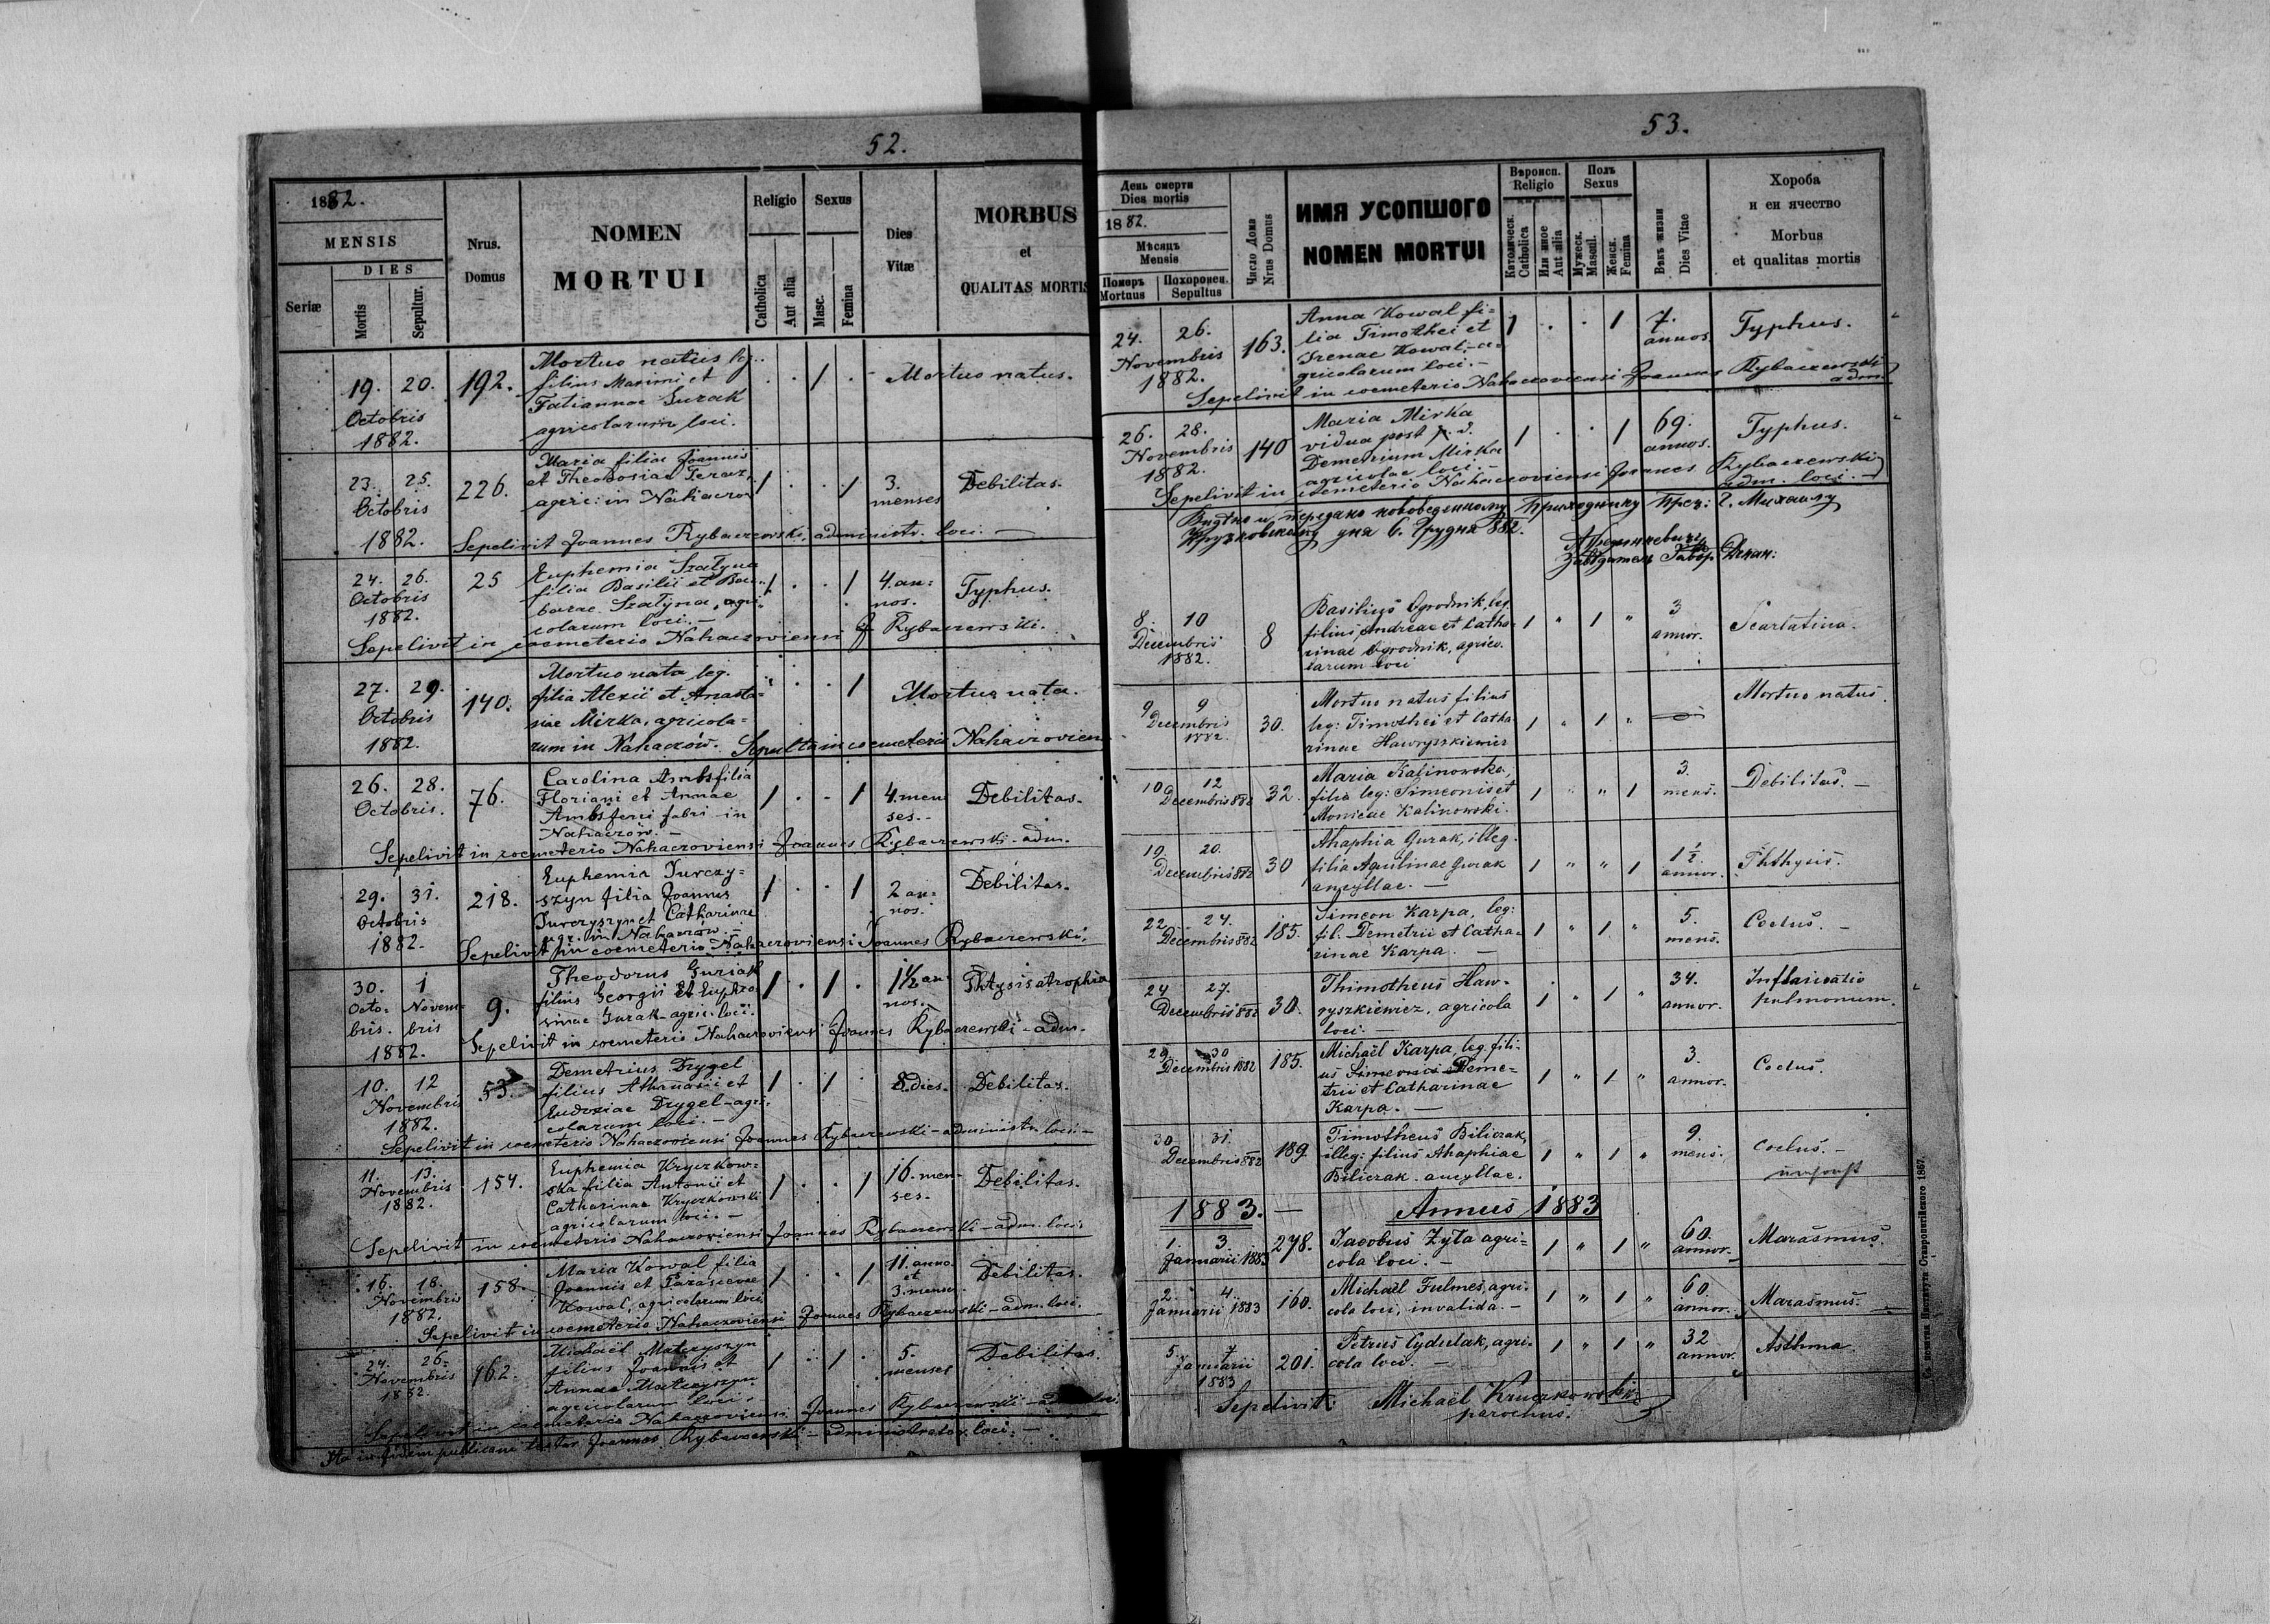 52.
1882.
MENSIS
DIES
Seriæ
Mortis
Sepultur.
Nrus.
Domus
NOMEN
MORTUI
Religio
Catholica
Aut alia
Sexus
Masc.
Femina
Dies
Vitæ
MORBUS
et
QUALITAS MORTIS
19. 20.
Octobris
1882.
192.
Mortuo natus leg.
filius Maximi et
Tatiannae Gurak
agricolarum loci.
Mortuo natus.
23. 25.
Octobris
1882.
226.
Maria filia Joannis
et Theodosiae
agric: in
3.
menses
Debilitas.
Sepelivit Joannes Rybaczewski, administr. loci. —
24. 26.
Octobris
1882.
25
Euphemia Szatyna
filia Basilii et Bar-
barae Szatyna, agri-
colarum loci. —
4. an=
nos.
Typhus.
Sepelivit in coemeterio Nahaczoviensi J Rybaczewski.
27. 29.
Octobris
1882.
140.
Mortuo nata leg.
filia Alexii et Anasta=
siae Mirka, agricola=
rum in Nahaczów.
Mortuo nata.
Sepulta in coemeterio Nahaczovien
26. 28.
Octobris.
76.
Carolina Ambs filia
Floriani et Annae
Ambs ferri fabri in
Nahaczów. —
4. men
ses. -
Debilitas.
Sepelivit in coemeterio Nahaczoviensi Joannes Rybaczewski - adm.
29. 31.
Octobris
1882.
218.
Euphemia Jurczy=
szyn filia Joannes
Jurczyszyn et Catharinae
agr. in Nahaczów. —
2 an=
nos.
Debilitas.
Sepelivit in coemeterio Nahaczoviensi Joannes Rybaczewski.
30. 1
Octo- Novem-
bris. bris
1882.
9.
Theodorus Guriak
filius Georgii et Euphro
sinae Gurak - agric: loci.
1½ an
nos.
Phtysis atrophia
Sepelivit in coemeterio Nahaczoviensi Joannes Rybaczewski - adm.
10. 12
Novembris
1882.
53.
Demetrius Drygel
filius Athanasii et
Eudoxiae Drygel - agri-
colarum loci. —
8. dies.
Debilitas.
Sepelivit in coemeterio Nahaczoviensi Joannes Rybaczewski - administr. loci -
11. 13.
Novembris
1882.
154.
Euphemia Kryczkow=
ska filia Antonii et
Catharinae Kryczkowski
agricolarum loci. —
16. men-
ses.
Debilitas.
Sepelivit in coemeterio Nahaczoviensi Joannes Rybaczewski - adm. loci.
16. 18.
Novembris
1882.
158.
Maria Kowal filia
Joannis et Parascevae
Kowal, agricolarum loci.
11. anno.
et
3. menses
Debilitas.
Sepelivit in coemeterio Nahaczoviensi Joannes Rybaczewski - adm. loci.
24. 26.
Novembris
1882.
162.
Michaël Matczyszyn
filius Joannis et
Annae Matczyszyn
agricolarum loci.
5.
menses
Debilitas.
Sepelivit in coemeterio Nahaczoviensi Joannes Rybaczewski - loci.
Ita in fidem publicam testor Joannes Rybaczewski - administrator loci. —
53.
День смерти
Dies mortis
1882.
Мѣсяць
Mensis
Померъ
Mortuus
Похоронен.
Sepultus
Число Дома
Nrus Domus
ИМЯ УСОПШОГО
NOMEN MORTUI
Вѣроисп.
Religio
Католическ.
Catholica
Или иное
Aut alia
Полъ
Sexus
Мужеск.
Mascul.
Женск.
Femina
Вѣкъ жизни
Dies Vitae
Хороба
и еи ячество
Morbus
et qualitas mortis
24. 26.
Novembris
1882.
163.
Anna Kowal fi=
lia Timothei et
Irenae Kowal - a=
gricolarum loci. —
7.
annos.
Typhus.
Sepelivit in coemeterio Nahaczoviensi Joannes Rybaczewski
adm.
26. 28.
Novembris
1882.
140
Maria Mirka
vidua post p. d.
Demetrium Mirka
agricolae loci. —
69.
annos.
Typhus.
Sepelivit in coemeterio Nahaczoviensi Joannes Rybaczewski
adm. loci. —
Видѣно и передано нововведенному Приходнику Преч: О. Михаилу
дня 6. Грудня 882.
Декан:
8. 10
Decembris
1882.
8
Basilius Ogrodnik, leg.
filius, Andreae et Catha-
rinae Ogrodnik, agrico-
larum loci
3
annor.
Scarlatina.
9 9
Decembris
1882.
30.
Mortuo natus filius
leg: Timothei et Catha
rinae Hawryszkiewicz
Mortuo natus
10 12
Decembris 882
32.
Maria Kalinowska,
filia leg: Simeonis et
Monicae Kalinowski.
3.
mens.
Debilitas. —
19. 20.
Decembris 882
30
Ahaphia Gurak, illeg.
filia Aquilinae Gurak
ancyllae. —
1½
annor.
Phthysis.
22. 24.
Decembris 882
185.
Simeon Karpa, leg:
fil. Demetrii et Catha-
rinae Karpa. —
5.
mens.
Coclus. —
24 27.
Decembris 882
30.
Thimotheus Haw-
ryszkiewicz, agricola
loci. —
34.
annor.
pulmonum.
29. 30
Decembris 1882
185.
Michaël Karpa, leg. fili-
us Simeonis Deme=
trii et Catharinae
Karpa. —
3.
annor.
Coclus.
30. 31.
Decembris 882
189.
Timotheus Biliczak,
illeg: filius Ahaphiae
Biliczak ancyllae.
9.
mens.
Coclus. —
1883. — Annus 1883
1. 3.
Januarii 1883
278.
Jacobus Zyta agri=
cola loci. —
60.
annor.
Marasmus.
2. 4
Januarii 1883
160.
Michaël Fulmes, agri-
cola loci, invalida. —
60.
annor.
Marasmus.
5. 7
Januarii
1883
201.
Petrus Cydulak, agri-
cola loci. —
32
annor.
Asthma
Sepelivit: Michaël Kruczkowski
parochus.
Съ печатни Института Ставропигійского 1867.